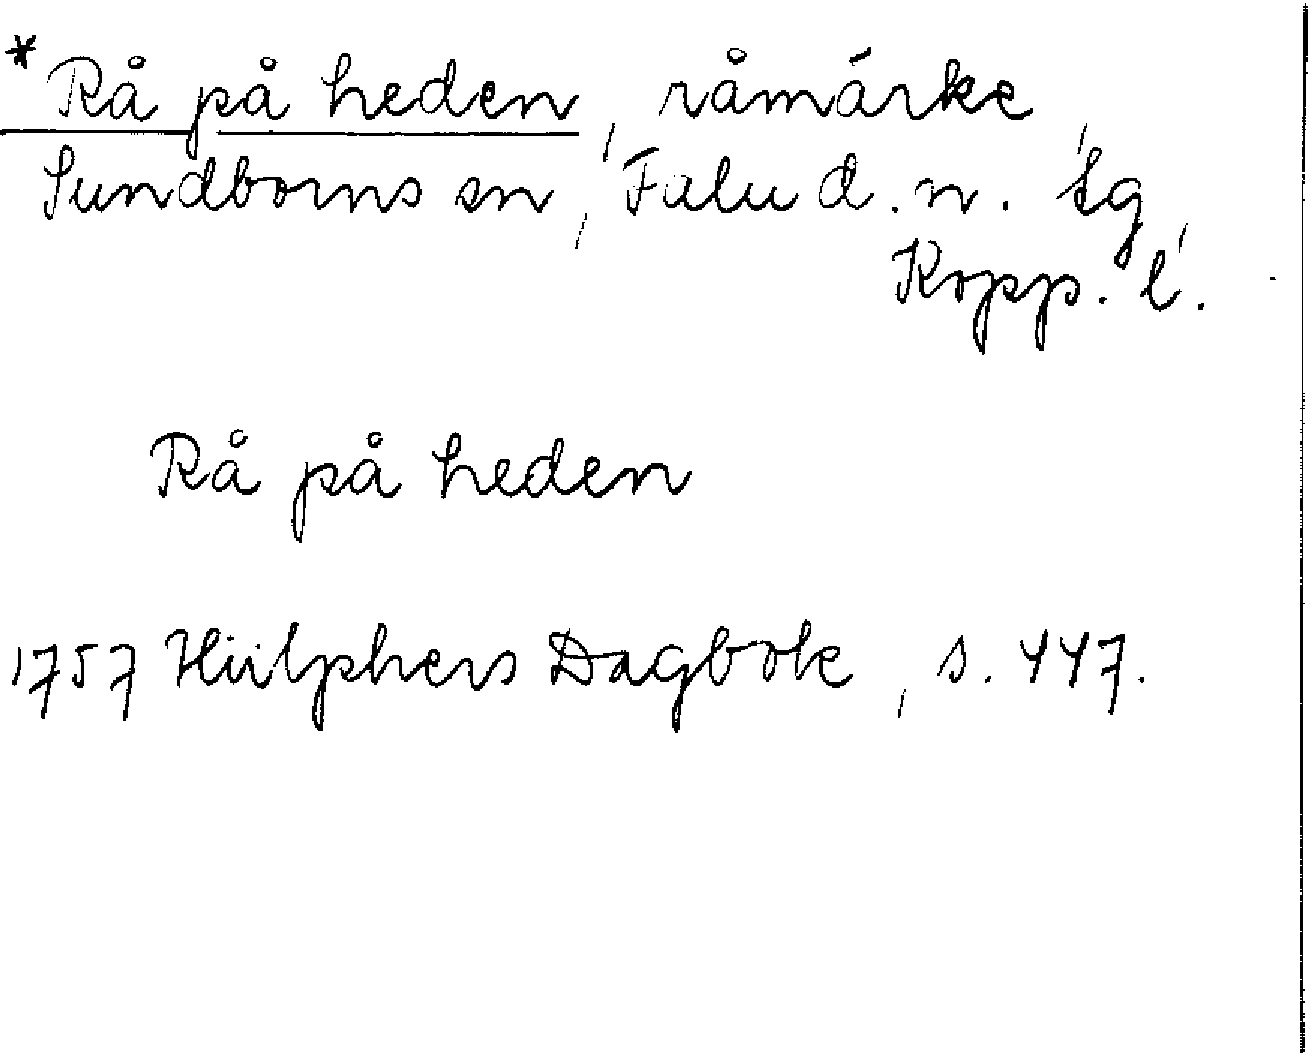 *Rå på heden, råmärke,
Sundborns sn, Falu d. n. tg,
Kopp. l.
Rå på heden
1757 Hülphers Dagbok, s. 447.